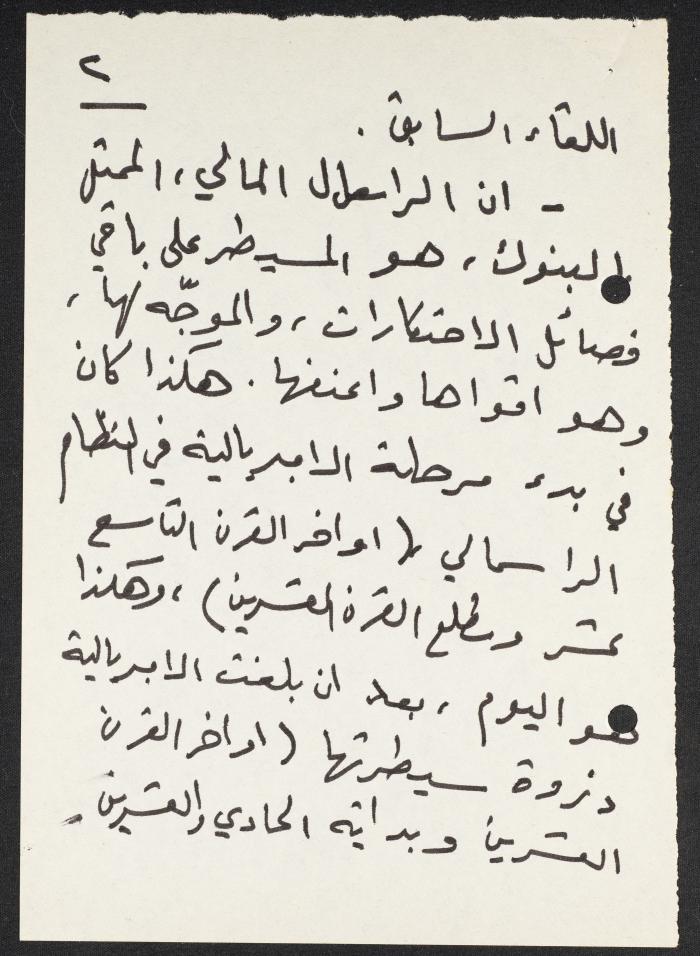 ٢
اللقاء السابق .
- ان الراسمال المالي ، الممثل
بالبنوك ، هو المسيطر على باقي
فصائل الاحتكارات ، والموجّه لها ،
وهو اقواها واعنفها . هكذا كان
في بدء مرحلة الامبريالية في النظام
الراسمالي ( اواخر القرن التاسع
عشر ومطلع القرن العشرين ) ، وهكذا
هو اليوم ، بعد ان بلغت الامبريالية
ذروة سيطرتها ( اواخر القرن
العشرين وبداية الحادي والعشرين